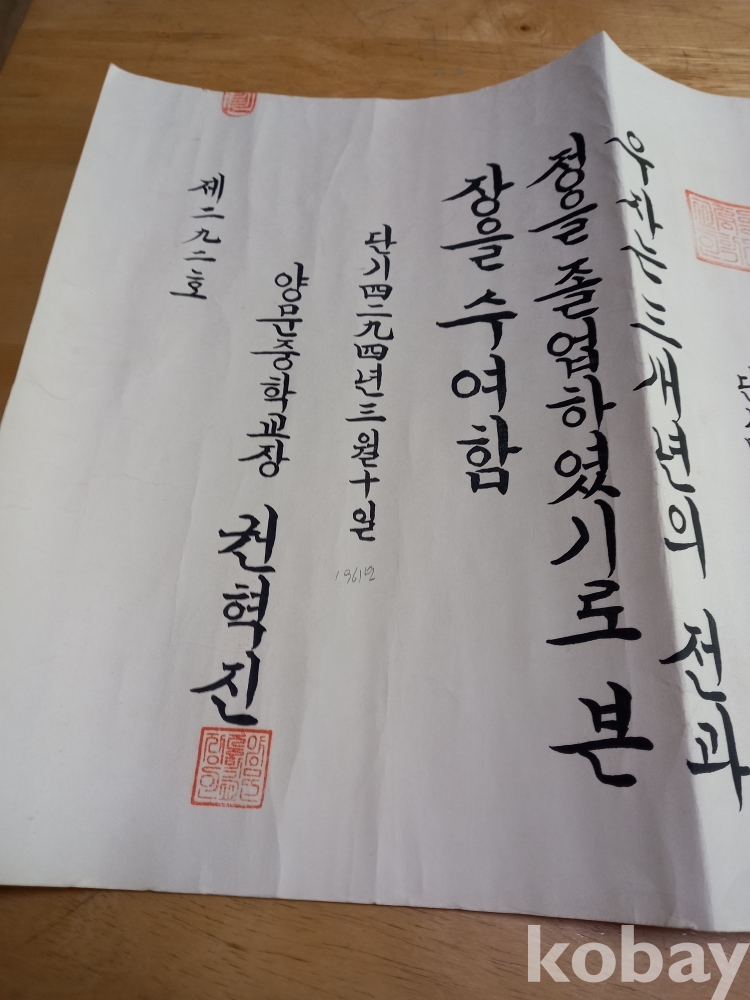 우자는 三개년의 전과
정을 졸업하였기로 본
장을 수여함
단기四二九四년 三월 十일
1961년
양문중학교장 권혁진
제二九二호
kobay